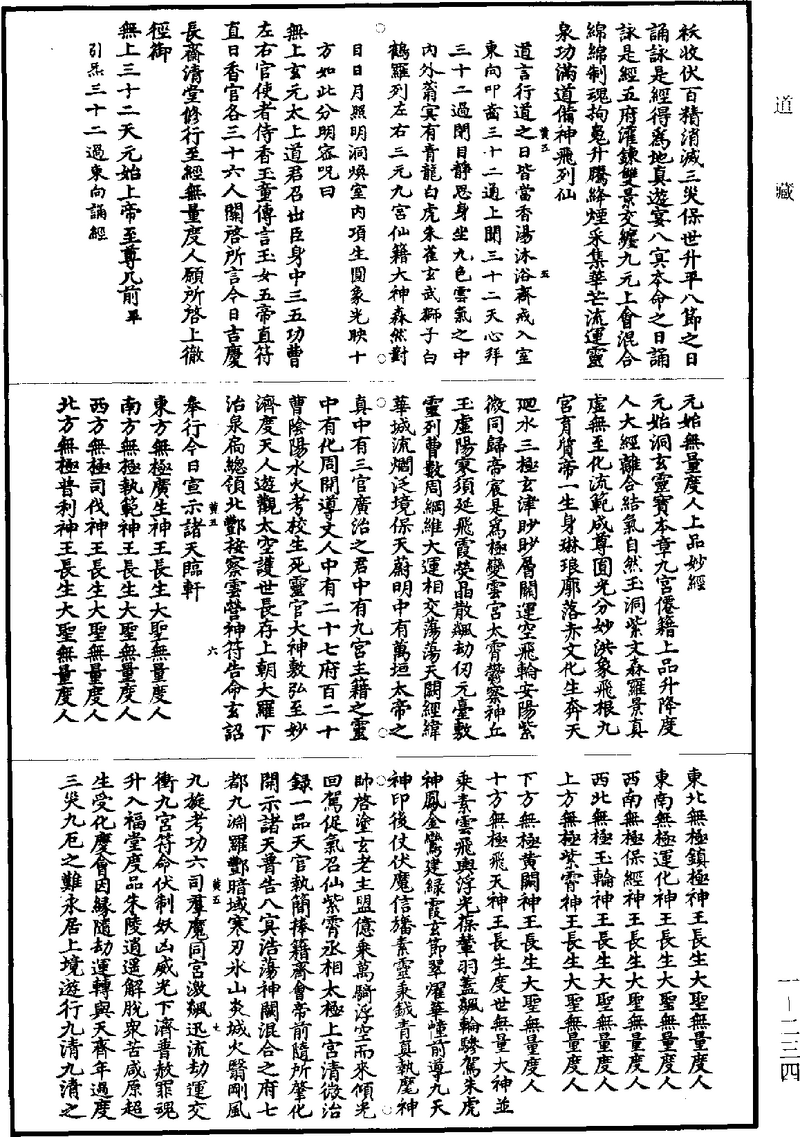 道藏
祅收伏百精消滅三災保世升平八節之日
誦詠是經得為地真遊宴八冥本命之日誦
詠是經五府灌鍊雙景交纏九元上會混合
綿綿制魂拘魄升騰絳煙采集華芒流運靈
泉功滿道備神飛列仙
道言行道之日皆當香湯沐浴齋戒入室
東向叩齒三十二通上聞三十二天心拜
三十二過閉目靜思身坐九色雲氣之中
內外蓊冥有青龍白虎朱雀玄武獅子白
鶴羅列左右三元九宮仙籍大神森然對
目日月照明洞煥室內項生圓象光映十
方如此分明密呪曰
無上玄元太上道君召出臣身中三五功曹
左右官使者侍香玉童傳言玉女五帝直符
直日香官各三十六人關啓所言今日吉慶
長齋清堂修行至經無量度人願所啓上徹
徑御
無上三十二天元始上帝至尊几前畢
引炁三十二過東向誦經
元始無量度人上品妙經
元始洞玄靈寶本章九宮僊籍上品升降度
人大經離合結氣自然玉洞紫文森羅景真
虛無至化流範成尊圓光分妙洪象飛根九
宮育質帝一生身琳琅廓落赤文化生奔天
迴水三極玄津眇眇層關運空飛輪安陽紫
微同歸帝宸是寫極變雲宮太霄鬱察神丘
玉虛陽寒須延飛霞熒晶散飆劫仞元臺敷
靈列曹數周綱維大運相交蕩蕩天闕經緯
華城流爛泛境保天蔚明中有萬垣太帝之
真中有三官廣治之君中有九宮主籍之靈
中有化周開導丈人中有二十七府百二十
曹陰陽水火考校生死靈官大神敷弘至妙
濟度天人遊觀太空護世長存上朝大羅下
治泉扃總領北酆按察雲營神符告命玄詔
奉行今日宣示諸天臨軒
東方無極廣生神王長生大聖無量度人
南方無極執範神王長生大聖無量度人
西方無極司伐神王長生大聖無量度人
北方無極普利神王長生大聖無量度人
東北無極鎮極神王長生大聖無量度人
東南無極運化神王長生大聖無量度人
西南無極保經神王長生大聖無量度人
西北無極玉輪神王長生大聖無量度人
上方無極紫霄神王長生大聖無量度人
下方無極黃闕神王長生大聖無量度人
十方無極飛天神王長生度世無量大神並
乘素雲飛輿浮光葆䕫羽蓋飆輪驂駕朱虎
神鳳金鸞建綠霞玄節翠燿華幢前導九天
神印後仗伏魔信旛素靈秉鉞青真執麾神
帥啓塗玄老主盟億乘萬騎浮空而來傾光
回駕促氣召仙紫霄丞相太極上宮清微治
録一品天官執簡捧籍齋會帝前隨所肇化
開示諸天普告八冥浩蕩神關混合之府七
都九淵羅酆暗域寒刃氷山炎城火翳剛風
九旋考功六司羣魔同宮激飆迅流劫運交
衝九宮符命伏制妖凶威光下濟普赦罪魂
升入福堂度品朱陵逍遥解脫衆苦咸原超
生受化慶會因緣隨劫運轉與天齊年過度
三災九厄之難永居上境遊行九清九清之
一—二三四